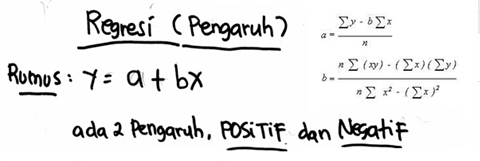 Regresi (Pengaruh)
a = (∑y - b∑x) / n
Rumus: Y = a + bx
b = (n∑(xy) - (∑x)(∑y)) / (n∑x² - (∑x)²)
ada 2 Pengaruh, POSITIF dan Negatif